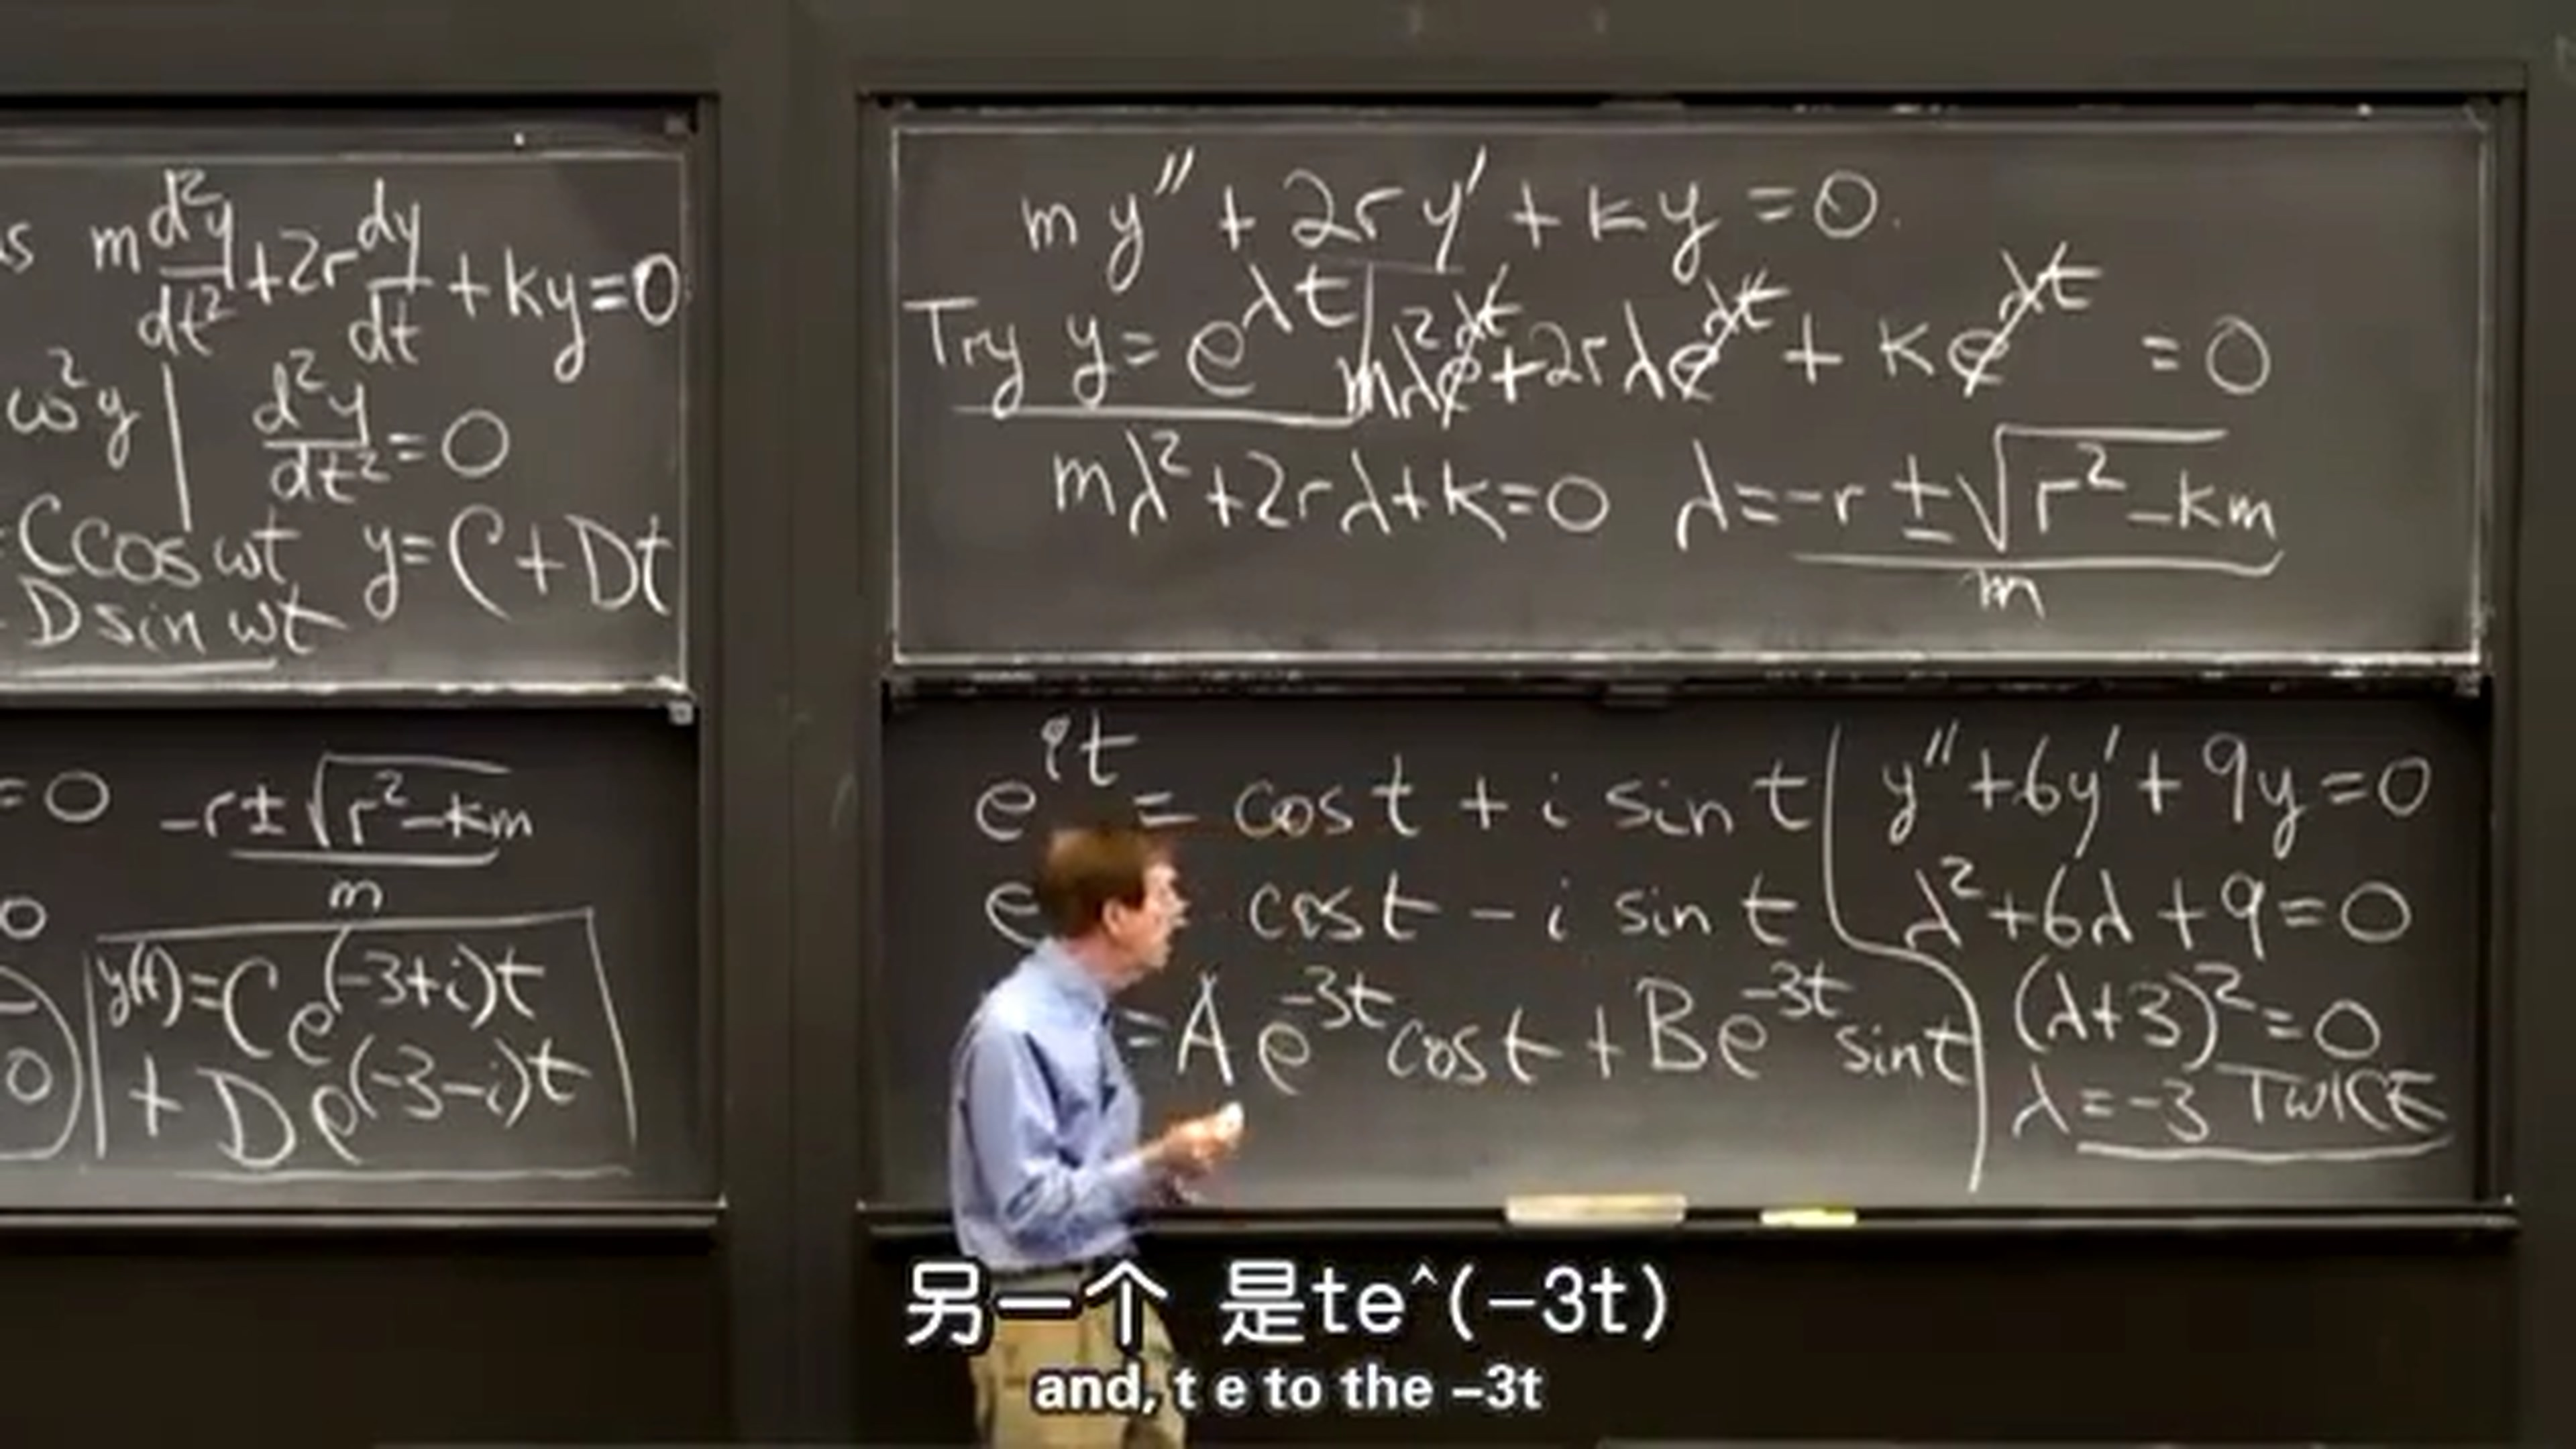 m d²y/dt² + 2r dy/dt + ky = 0
ω²y | d²y/dt² = 0
C cos ωt y = C + Dt
D sin ωt
= 0 (-r ± √(r² - km))/m
0
y(t) = C e^(-3+i)t
+ D e^(-3-i)t
my″ + 2ry′ + ky = 0
Try y = e^λt | mλ²e^λt + 2rλe^λt + ke^λt = 0
mλ² + 2rλ + k = 0 λ = (-r ± √(r² - km))/m
e^it = cos t + i sin t
e cos t - i sin t
= A e^-3t cos t + B e^-3t sin t
y″ + 6y′ + 9y = 0
λ² + 6λ + 9 = 0
(λ+3)² = 0
λ = -3 TWICE
另一个 是te^(-3t)
and, t e to the -3t